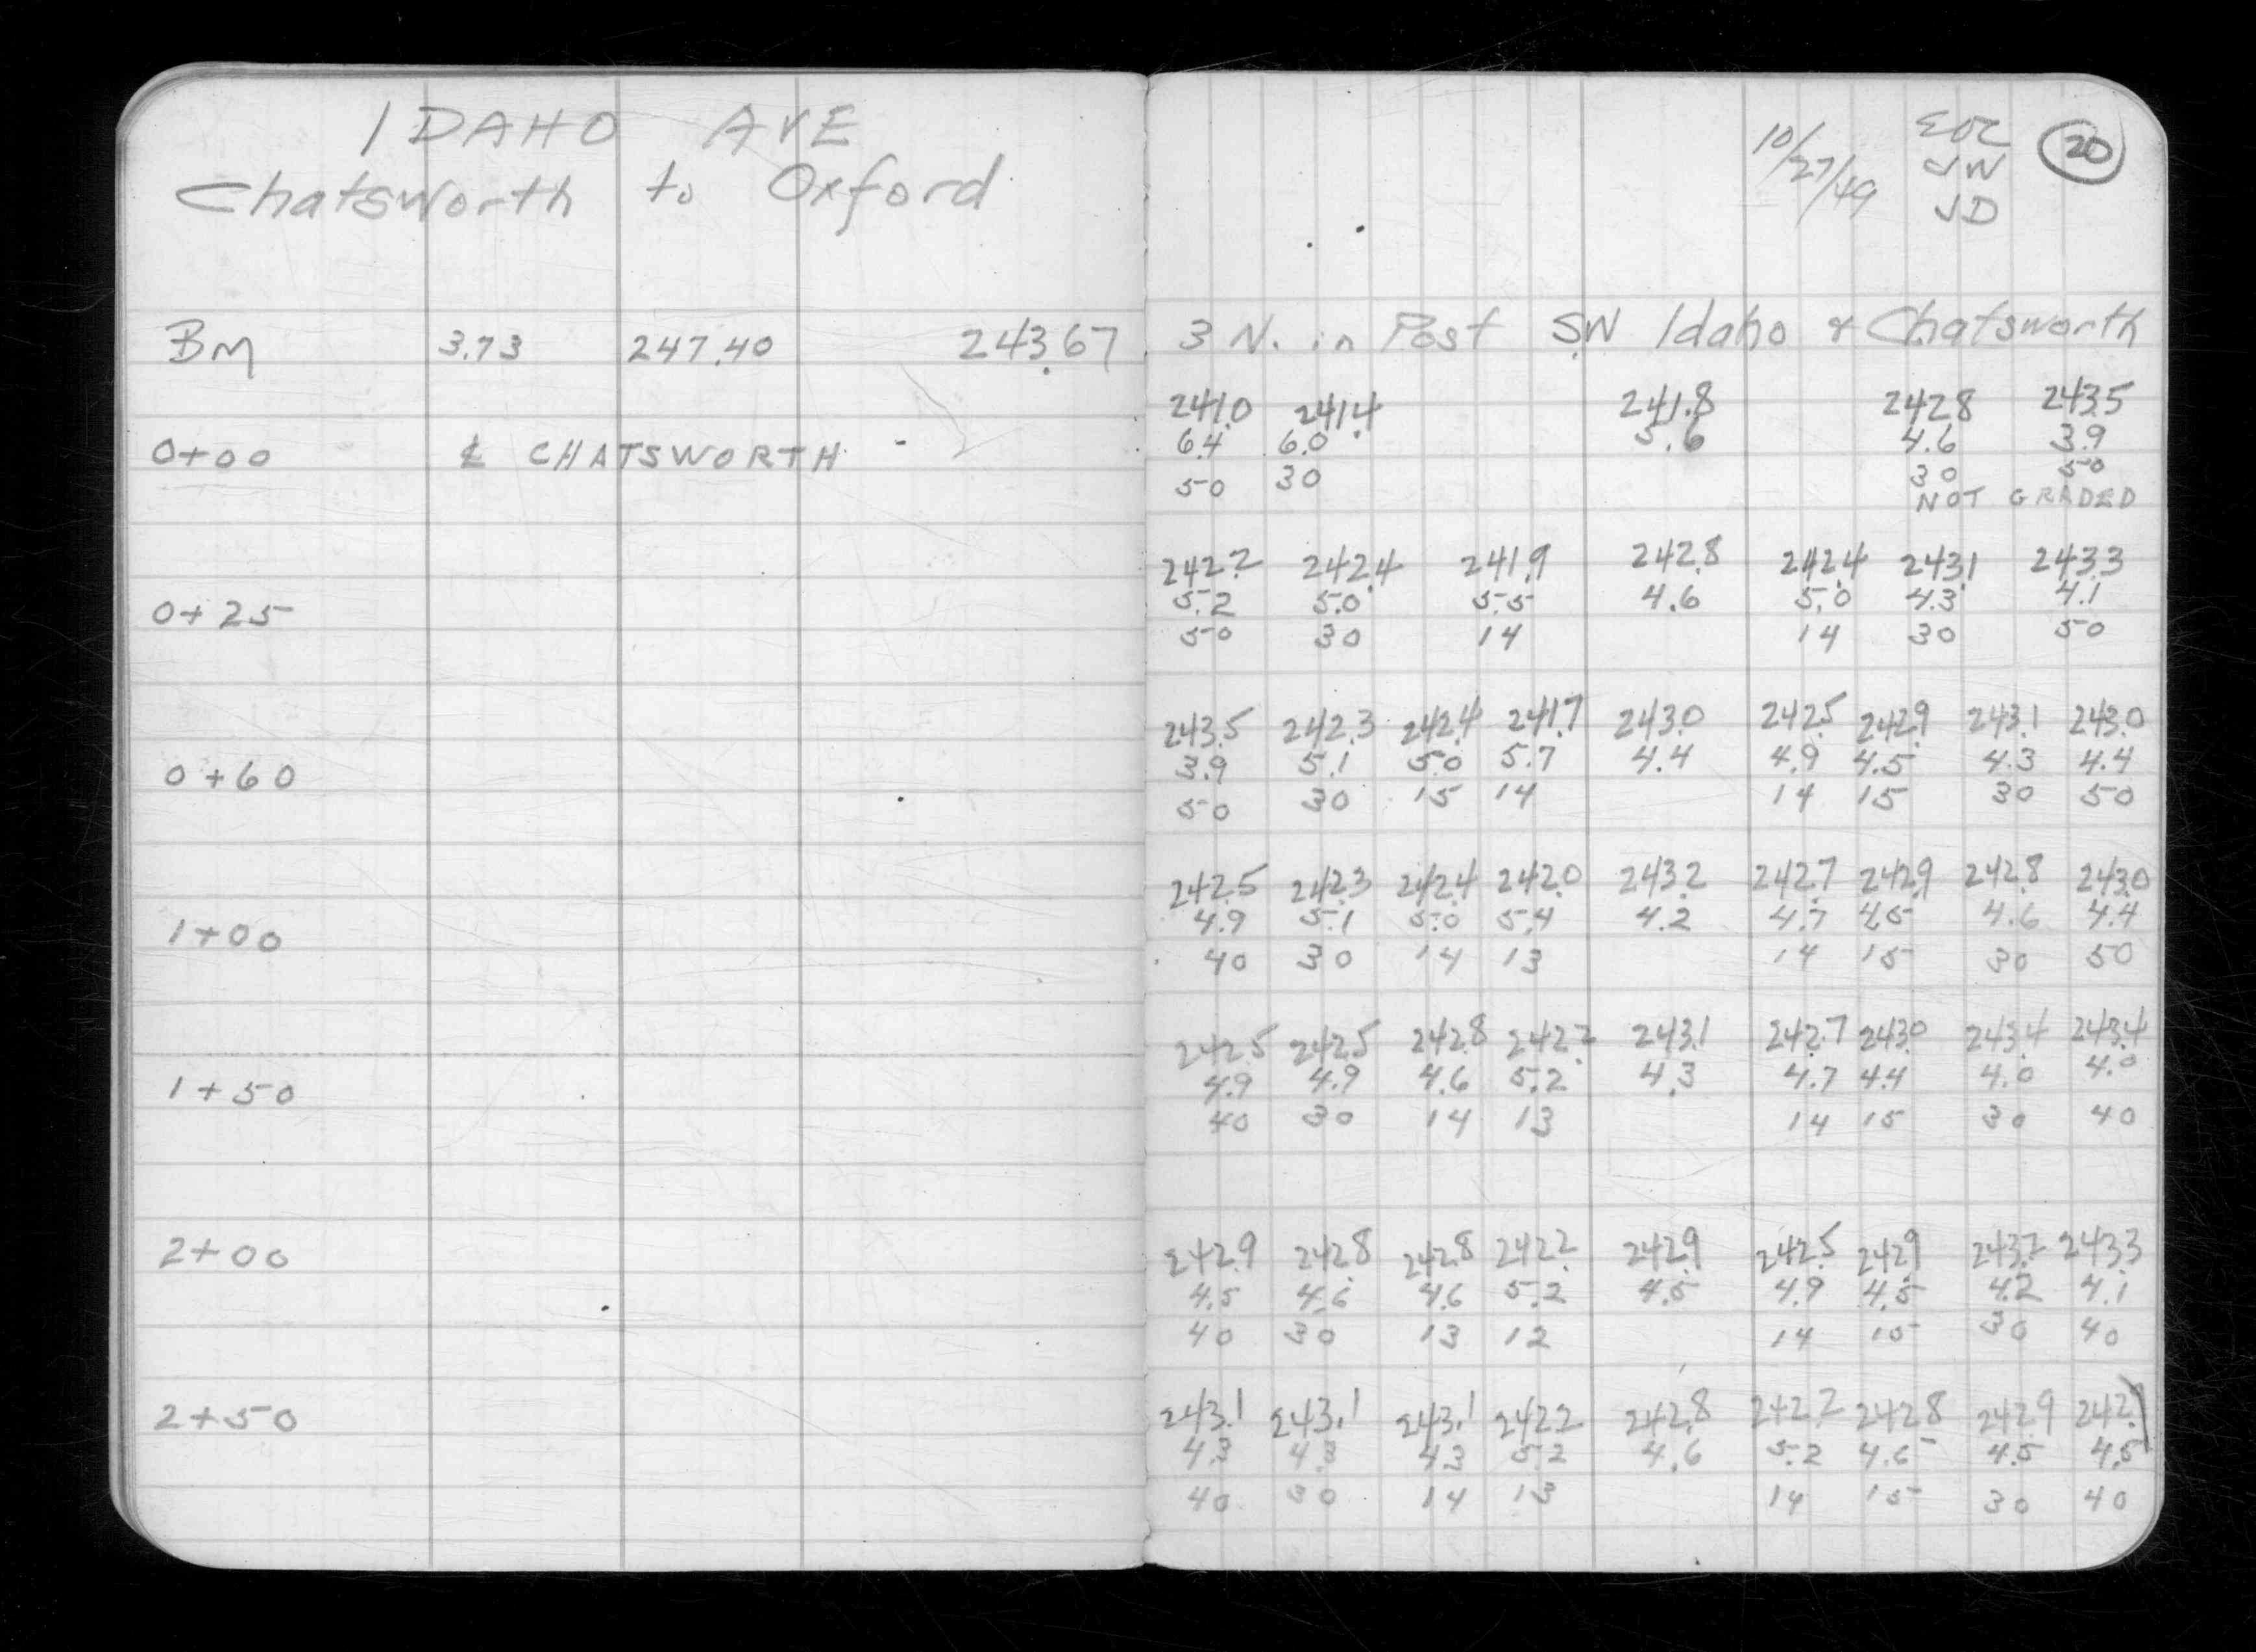 IDAHO AVE
Chatsworth to Oxford
BM 3.73 247.40 243.67
0+00 ℄ CHATSWORTH
0+25
0+60
1+00
1+50
2+00
2+50
10/27/49
EOC
JW
JD
20
3 N. in Post SW Idaho & Chatsworth
241.0 241.4 241.8 242.8 243.5
6.4 6.0 5.6 4.6 3.9
50 30 30 50
NOT GRADED
242.2 242.4 241.9 242.8 242.4 243.1 243.3
5.2 5.0 5.5 4.6 5.0 4.3 4.1
50 30 14 14 30 50
243.5 242.3 242.4 241.7 243.0 242.5 242.9 243.1 243.0
3.9 5.1 5.0 5.7 4.4 4.9 4.5 4.3 4.4
50 30 15 14 14 15 30 50
242.5 242.3 242.4 242.0 243.2 242.7 242.9 242.8 243.0
4.9 5.1 5.0 5.4 4.2 4.7 4.5 4.6 4.4
40 30 14 13 14 15 30 50
242.5 242.5 242.8 242.2 243.1 242.7 243.0 243.4 243.4
4.9 4.9 4.6 5.2 4.3 4.7 4.4 4.0 4.0
40 30 14 13 14 15 30 40
242.9 242.8 242.8 242.2 242.9 242.5 242.9 243.2 243.3
4.5 4.6 4.6 5.2 4.5 4.9 4.5 4.2 4.1
40 30 13 12 14 15 30 40
243.1 243.1 243.1 242.2 242.8 242.2 242.8 242.9
4.3 4.3 4.3 5.2 4.6 5.2 4.6 4.5 4.5
40 30 14 13 14 15 30 40